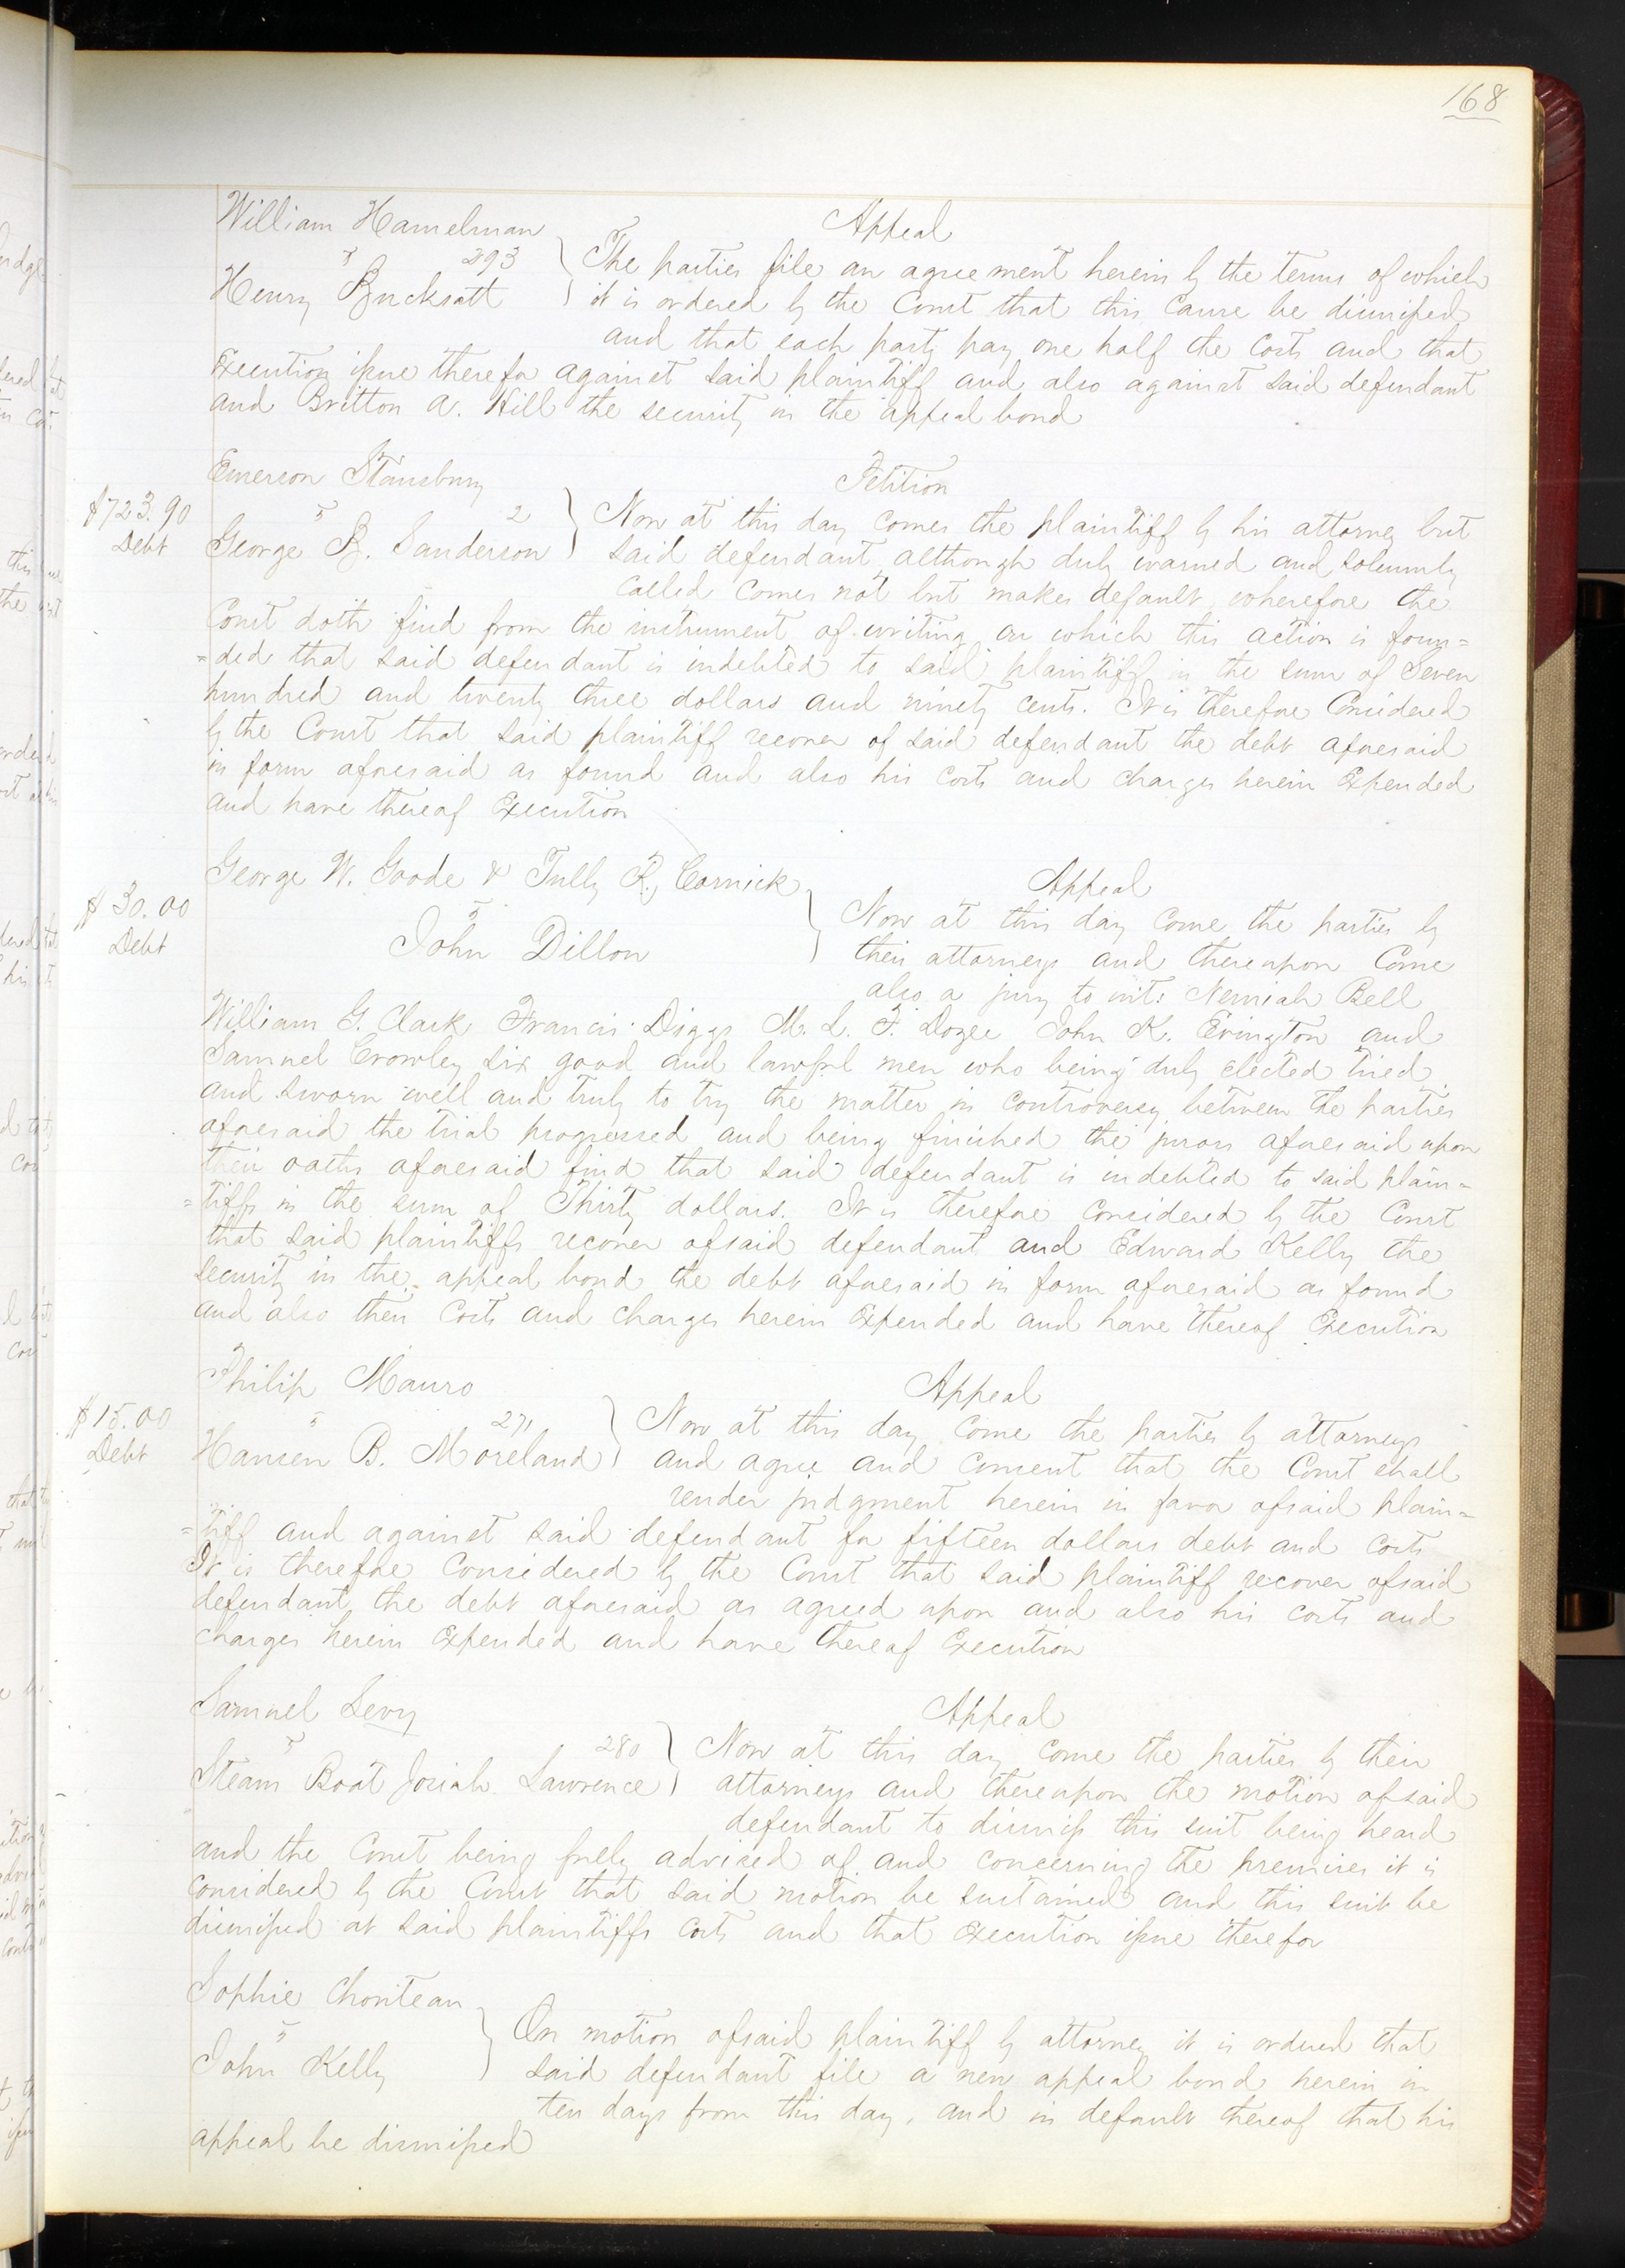 168
William Hamelman Appeal
vs 293 The parties file an agreement herein by the terms of which
Henry Bucksatt it is ordered by the Court that this Cause be dismissed
and that each party pay one half the Costs and that
Execution issue therefor against said plaintiff and also against said defendant
and Britton A. Hill the security in the appeal bond
Emerson Stansbury Petition
$723.90 vs 2 Now at this day comes the plaintiff by his attorney but
Debt George B. Sanderson said defendant although duly warned and solemnly
called comes not but makes default wherefore the
Court doth find from the instrument of writing on which this action is foun=
=ded that said defendant is indebted to said plaintiff in the sum of Seven
hundred and twenty three dollars and ninety cents. It is therefore Considered
by the Court that said plaintiff recover of said defendant the debt aforesaid
in form aforesaid as found and also his costs and charges herein Expended
and have thereof Execution
George W. Goode & Tully R. Cornick Appeal
$30.00 vs Now at this day Come the parties by
Debt John Dillon their attorneys and thereupon Come
also a jury to wit: Nemiah Bell
William G. Clark Francis Diggs M. L. F. Dozee John K. Evington and
Samuel Crowley six good and lawful men who being duly elected tried
and sworn well and truly to try the matter in controversy between the parties
aforesaid the trial progressed and being finished the jurors aforesaid upon
their oaths aforesaid find that said defendant is indebted to said plain=
=tiffs in the sum of Thirty dollars. It is therefore Considered by the Court
that said plaintiffs recover of said defendant and Edward Kelly the
security in the appeal bond the debt aforesaid in form aforesaid as found
and also their Costs and charges herein Expended and have thereof Execution
Philip Mauro Appeal
$15.00 vs 271 Now at this day come the parties by attorneys
Debt Hansen B. Moreland and agree and consent that the Court shall
render judgment herein in favor of said plain=
=tiff and against said defendant for fifteen dollars debt and costs
It is therefore Considered by the Court that said plaintiff recover of said
defendant the debt aforesaid as agreed upon and also his costs and
charges herein Expended and have thereof Execution
Samuel Levy Appeal
vs 280 Now at this day come the parties by their
Steam Boat Josiah Lawrence attorneys and thereupon the motion of said
defendant to dismiss this suit being heard
and the Court being fully advised of and concerning the premises it is
considered by the Court that said motion be sustained and this suit be
dismissed at said plaintiffs costs and that execution issue therefor
Sophie Chouteau
vs On motion of said plaintiff by attorney it is ordered that
John Kelly said defendant file a new appeal bond herein in
ten days from this day, and in default thereof that his
appeal be dismissed